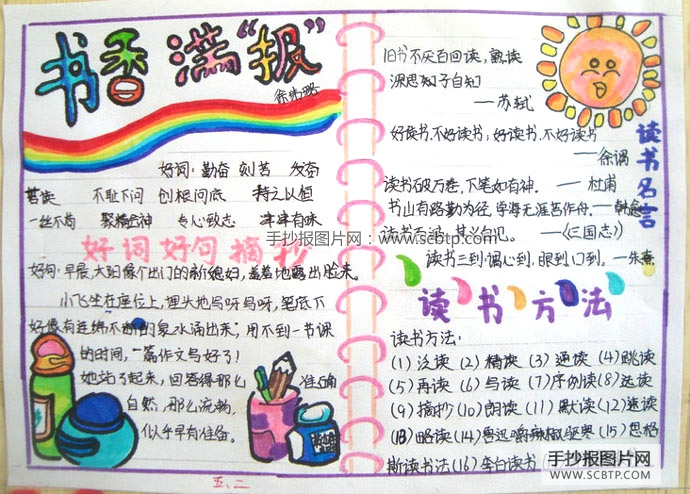 书香满“报”
好词：勤奋 刻苦 发奋
苦读 不耻下问 刨根问底 持之以恒
一丝不苟 聚精会神 专心致志 津津有味
好词好句摘抄
好句：早晨，太阳像个出门的新媳妇，羞羞地露出脸来。
小飞坐在座位上，埋大地写呀写呀，笔底下
好像有连绵不断的泉水涌出来，用不到一节课
的时间，一篇作文写好了！
她站了起来，回答得那么准确
自然，那么流畅，
似乎早有准备。
五、二
旧书不厌百回读，熟读
深思如子自知
——苏轼
好读书，不好读书，好读书，不好读书
——徐渭
读书破万卷，下笔如有神。——杜甫
书山有路勤为径，学海无涯苦作舟。——韩愈
读书百遍，其义自见。——《三国志》
读书三到：谓心到，眼到，口到。—朱熹
读书名言
读书方法
读书方法：
(1) 泛读 (2) 精读 (3) 通读 (4) 跳读
(5) 再读 (6) 写读 (7) 序例读 (8) 选读
(9) 摘抄 (10) 朗读 (11) 默读 (12) 速读
(13) 略读 (14) 鲁迅嚼辣椒驱寒 (15) 恩格
斯读书法 (16) 李白读书
手抄报图片网：www.scbtp.com
手抄报图片网
WWW.SCBTP.COM